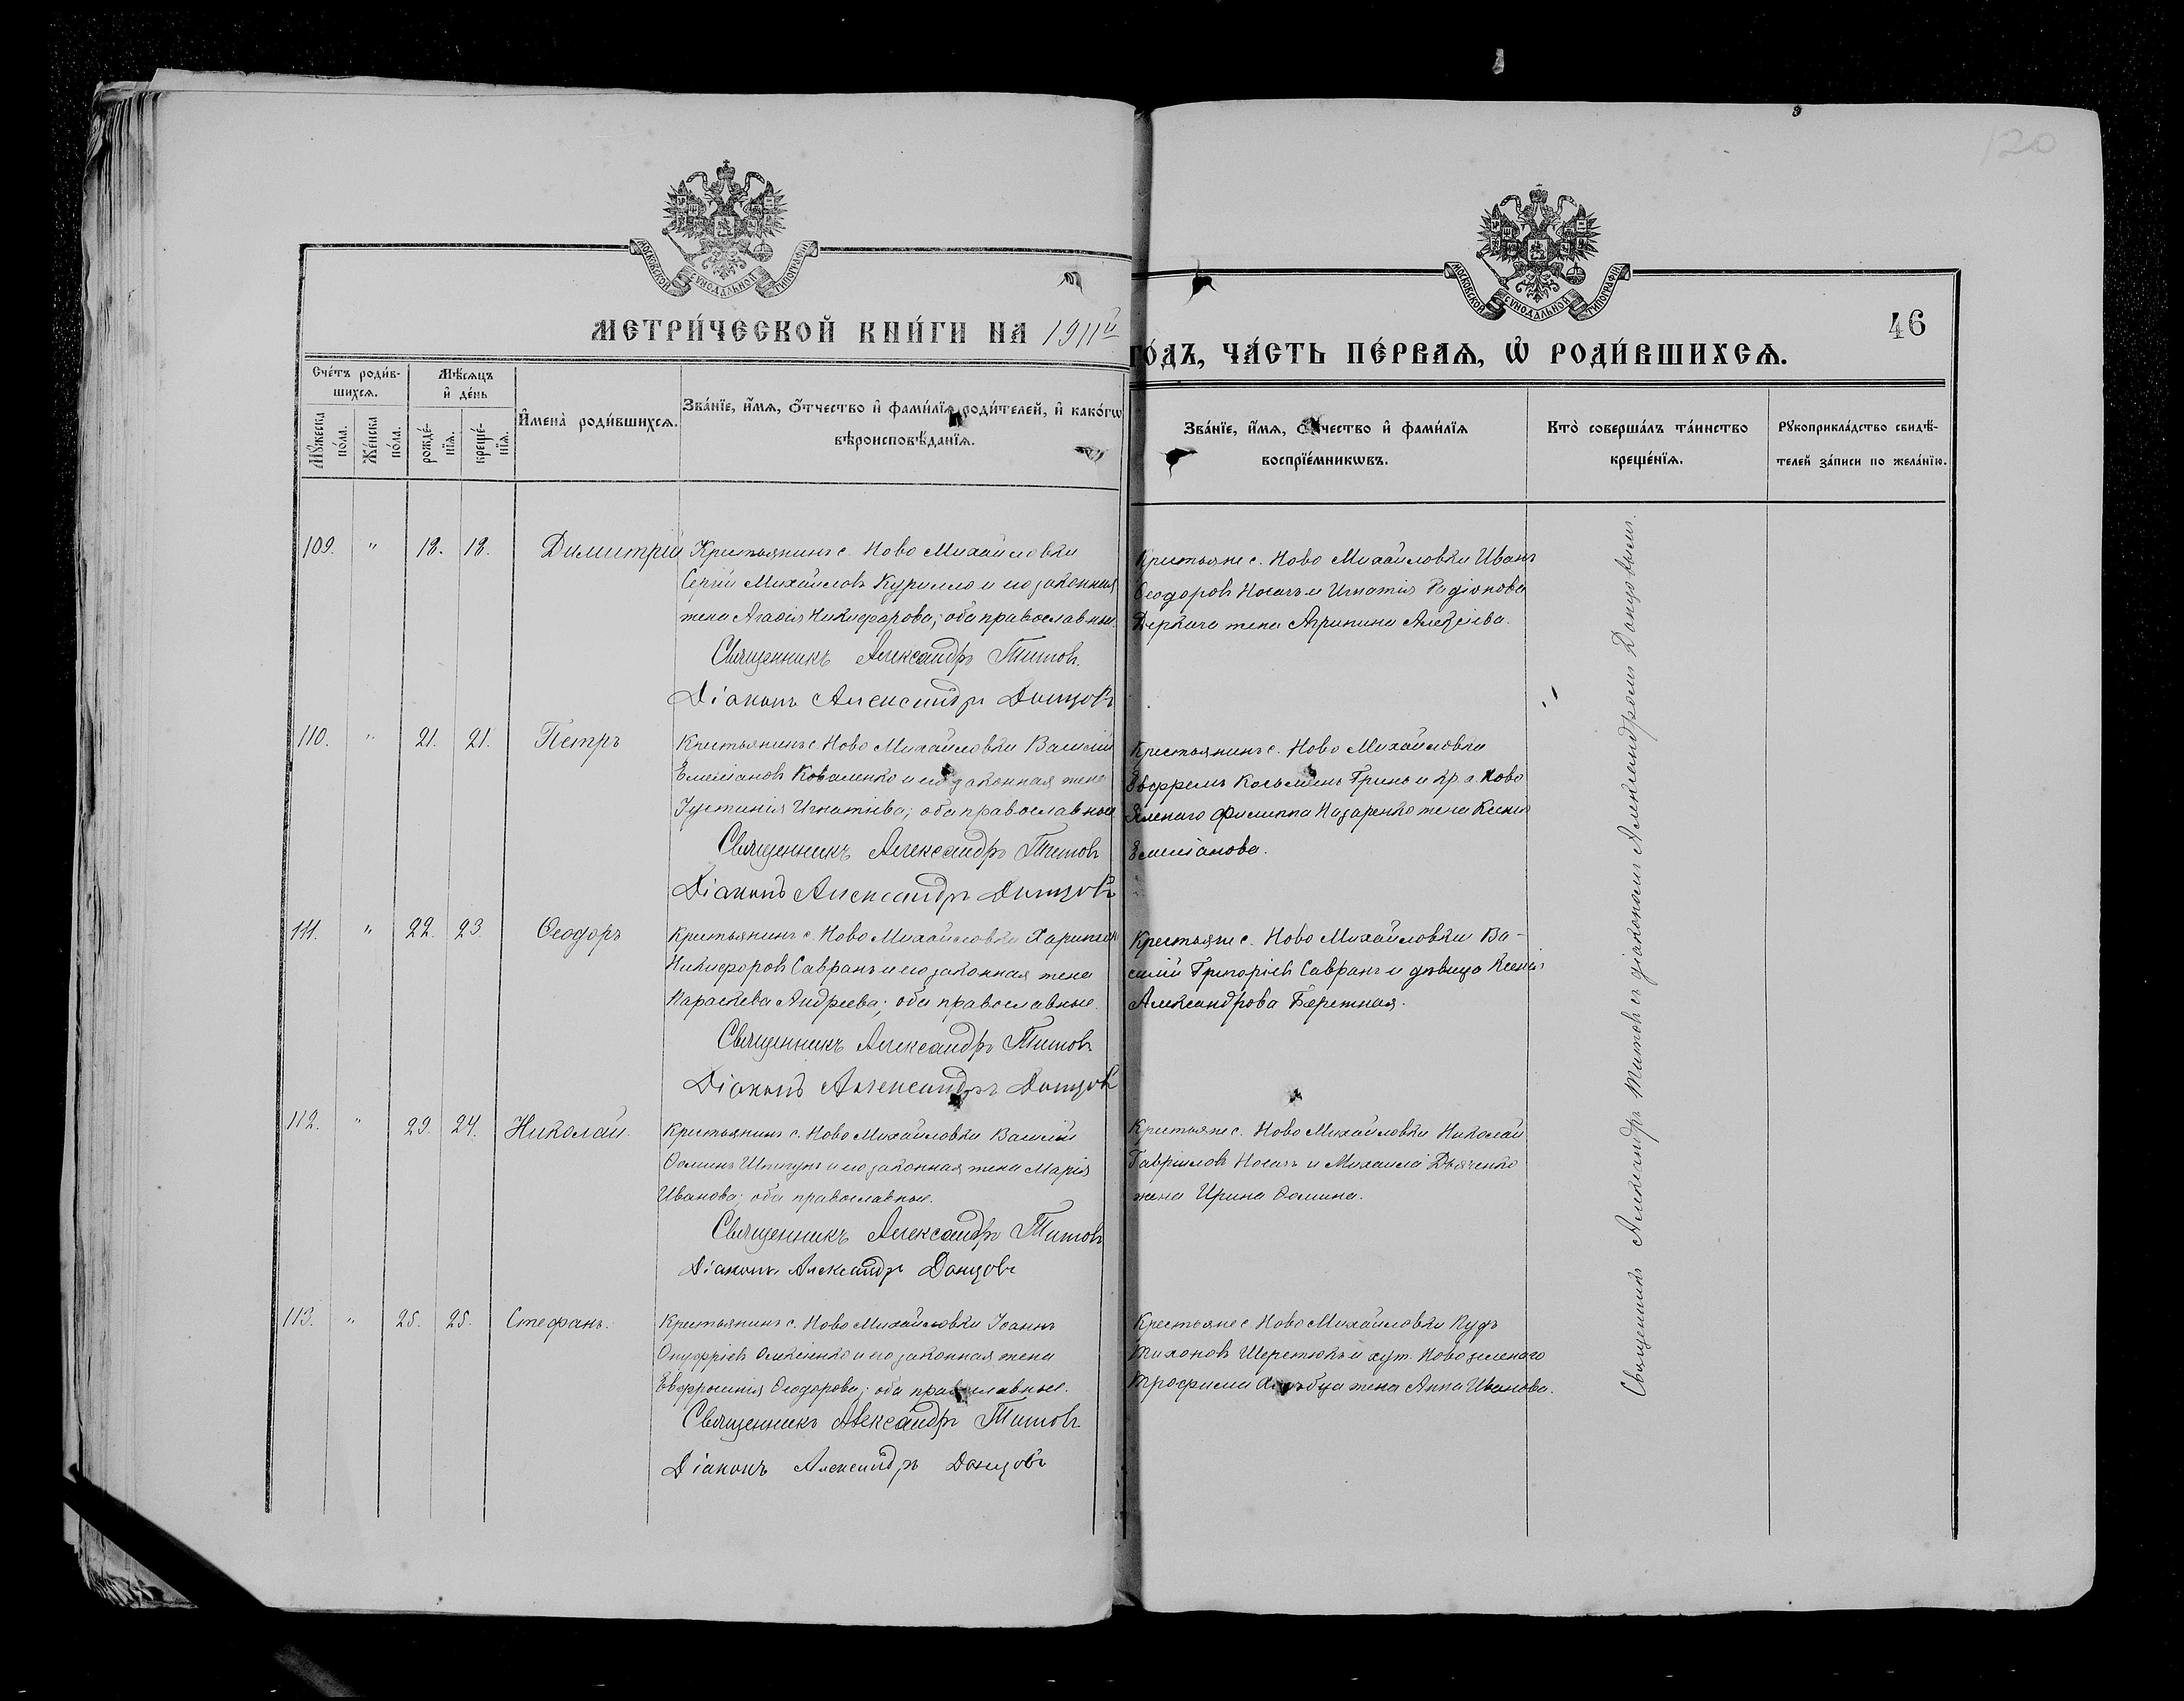 120
МОСКОВСКОЙ СѴНОДАЛЬНОЙ ТИПОГРАФІИ
МОСКОВСКОЙ СѴНОДАЛЬНОЙ ТИПОГРАФІИ
46
МЕТРИ́ЧЕСКОЙ КНИ́ГИ НА 1911й
ГО́ДЪ, ЧА́СТЬ ПЕ́РВАѦ, Ѡ҆ РОДИ́ВШИХСѦ.
Сче́тъ роди́в-
шихсѧ.
Мꙋ́жеска по́ла.
Же́нска по́ла.
Мѣ́сѧцъ
и҆ де́нь
рожде́-
нїѧ.
креще́-
нїѧ.
И҆мена̀ роди́вшихсѧ.
Зва́нїе, и҆́мѧ, ѻ҆́тчество и҆ фами́лїѧ роди́телей, и҆ како́гѡ
вѣроисповѣ́данїѧ.
Зва́нїе, и҆́мѧ, ѻ҆́тчество и҆ фами́лїѧ
воспрїе́мникѡвъ.
Кто̀ соверша́лъ та́инство
креще́нїѧ.
Рꙋкоприкла́дство свидѣ́-
телей за́писи по жела́нїю.
109. " 18. 18. Димитрій
Крестьянинъ с. Ново Михайловки
Сергій Михайловъ Курилло и его законная
жена Агафія Никифорова; оба православные.
Священникъ Александръ Титовъ.
Діаконъ Александръ Донцовъ
Крестьяне с. Ново Михайловки Иванъ
Ѳеодоровъ Носачъ и Игнатія Родіонова
Деркача жена Агрипина Алексіева.
110. " 21. 21. Петръ
Крестьянинъ с. Ново Михайловки Василій
Емеліановъ Коваленко и его законная жена
Іустинія Игнатіева; оба православные
Священникъ Александръ Титовъ
Діаконъ Александръ Донцовъ
Крестьянинъ с. Ново Михайловки
Косьминъ Гринь и кр. Ново
Филиппа Назаренко жена Ксенія
Емеліанова.
111. " 22. 23. Ѳеодоръ
Крестьянинъ с. Ново Михайловки Харитонъ
Никифоровъ Савранъ и его законная жена
Параскева Андреева; оба православные.
Священникъ Александръ Титовъ
Діаконъ Александръ Донцовъ
Крестьяне с. Ново Михайловки Ва-
силій Григоріевъ Савранъ и дѣвица Ксенія
Александрова Бережная.
112. " 23. 24. Николай.
Крестьянинъ с. Ново Михайловки Василій
Ѳоминъ и его законная жена Марія
Иванова; оба православные.
Священникъ Александръ Титовъ
Діаконъ Александръ Донцовъ
Крестьяне с. Ново Михайловки Николай
Гавріиловъ Носачъ и Михаила Дьяченко
жена Ирина Ѳомина.
113. " 25. 25. Стефанъ.
Крестьянинъ с. Ново Михайловки Іоаннъ
Онуфріевъ Олексенко и его законная жена
Евфросинія Ѳеодорова; оба православные.
Священникъ Александръ Титовъ
Діаконъ Александръ Донцовъ
Крестьяне с Ново Михайловки
Тихоновъ Шереметюкъ и хут. Новозеленаго
Трофима жена Анна Иванова.
Священникъ Александръ Титовъ съ діакономъ Александромъ Донцовымъ.